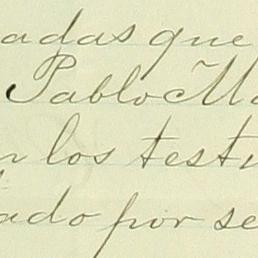 adas que
Pablo Ma
n los testi
ado por se